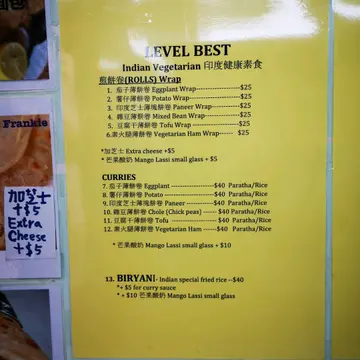 LEVEL BEST
Indian Vegetarian 印度健康素食
煎餅卷(ROLLS) Wrap
1. 茄子薄餅卷 Eggplant Wrap----------------$25
2. 薯仔薄餅卷 Potato Wrap------------------$25
3. 印度芝士薄塊卷 Paneer Wrap-------------$25
4. 雜豆薄餅卷 Mixed Bean Wrap------------$25
5. 豆腐干薄餅卷 Tofu Wrap -----------------$25
6.素火腿薄餅卷 Vegetarian Ham Wrap------ $25
*加芝士 Extra cheese +$5
* 芒果酸奶 Mango Lassi small glass + $5
CURRIES
7. 茄子薄餅卷 Eggplant ------------------$40 Paratha/Rice
8. 薯仔薄餅卷 Potato --------------------$40 Paratha/Rice
9. 印度芝士薄塊卷 Paneer ---------------$40 Paratha/Rice
10. 雜豆薄餅卷 Chole (Chick peas) ------$40 Paratha/Rice
11. 豆腐干薄餅卷 Tofu ------------------$40 Paratha/Rice
12. 素火腿薄餅卷 Vegetarian Ham ------$40 Paratha/Rice
* 芒果酸奶 Mango Lassi small glass + $10
13. BIRYANI- Indian special fried rice --$40
*+ $5 for curry sauce
* + $10 芒果酸奶 Mango Lassi small glass
Frankie
加芝士
+$5
Extra
Cheese
+$5